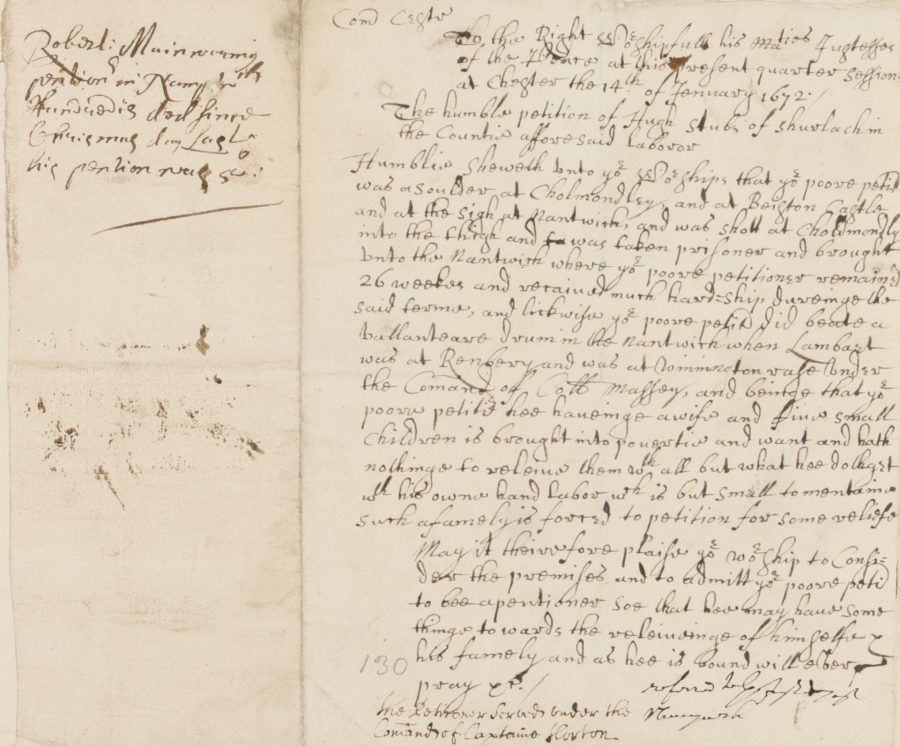 Robert: Mainwaring
pention in Nampwich
Hundred is ded since
Chrismas day Last
his pention was
Com Cestr
To the Right Worshipfull his Maties Justesses
of the Peace at this present quarter Session
at Chester the 14th of Jenuary 1672 /
The humble petition of Hugh Stubs of Shurlach in
the Countie afforesaid Laboror
Humblie Sheweth unto yor Worships that yor poore petit
was a Soulder at Cholmondley, and at Beiston Castle
and at the Sigh at Nantwich, and was shott at Cholmondly
into the thigh and was taken prisoner and brought
unto the Nantwich where yor poore petitioner remained
26 weekes and receaived much hard=Ship dureinge the
said terme, and lickwise yor poore petit did beate a
vallanteare drum in the Nantwich when Lambart
was at Renbery and was at Winnington rase under
the Comand of Coll Massey, and beinge that yor
poore petitr hee haveinge a wife and five small
Children is brought into povertie and want and hath
nothinge to releive them wth all but what hee doth get
wth his owne hand labor wch is but small to mentaine
such a famely is forced to petition for some reliefe
May it theirefore plaise yor worship to Consi=
der the premises and to admitt yor poore peti
to bee a pentioner soe that hee may have some
thinge towards the releiveinge of himselfe &
his famely and as hee is bound will ever
130
pray &c /
referred to
the Petitioner Served under the
Comand of Captaine Horton.